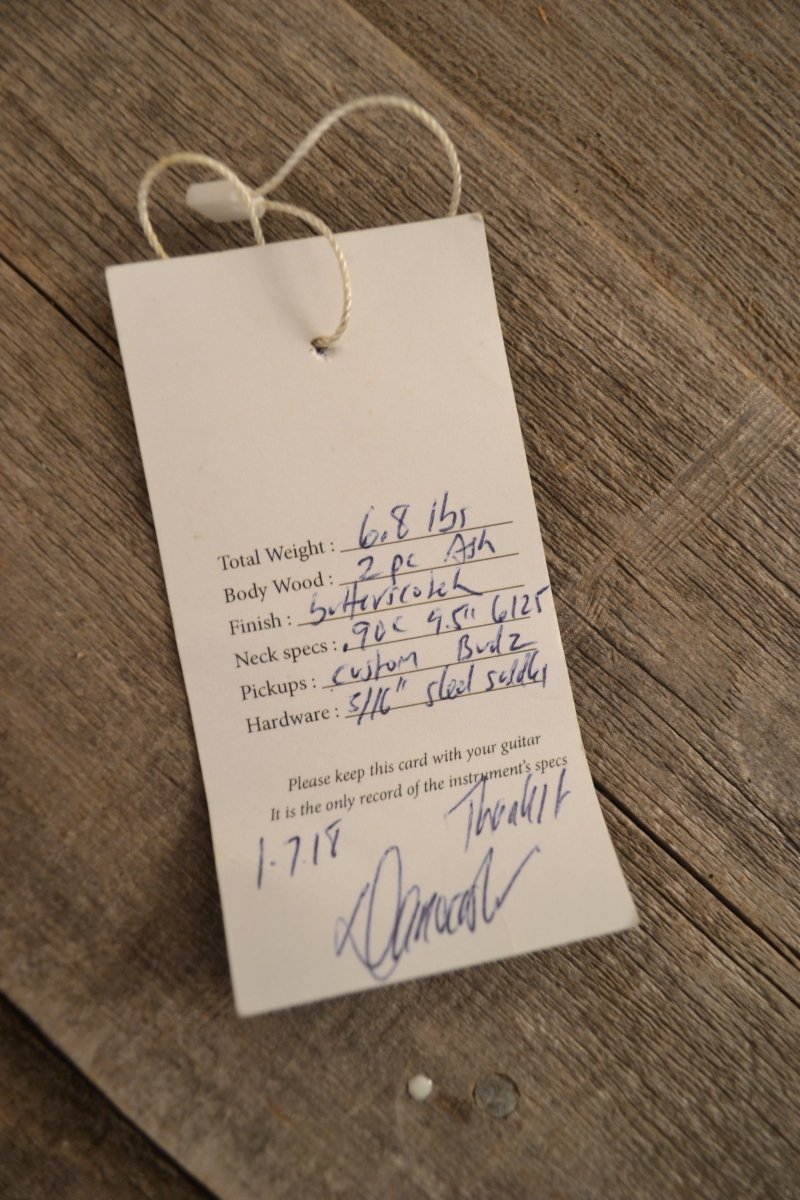 Total Weight : 6.8 lbs
Body Wood : 2 pc Ash
Finish : butterscotch
Neck specs : .90 c 9.5" 6125
Pickups : custom Budz
Hardware : 5/16" steel saddles
Please keep this card with your guitar
It is the only record of the instrument's specs
1.7.18
Danocaster